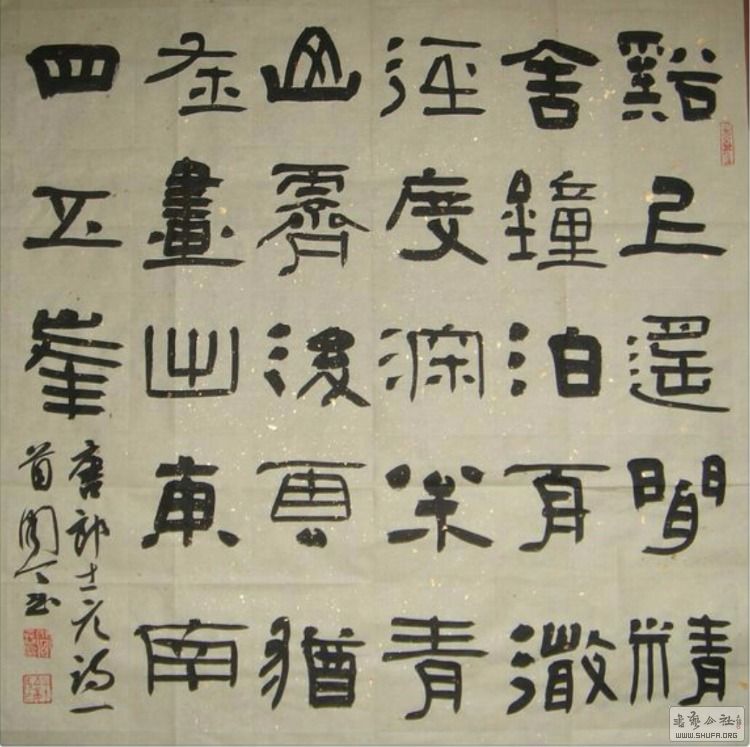 谿上遙聞精
舍鐘泊舟微
徑度深松青
山霽後雲猶
在畫出東南
四五峯
唐郎士元詩一
首
书艺公社
WWW.SHUFA.ORG